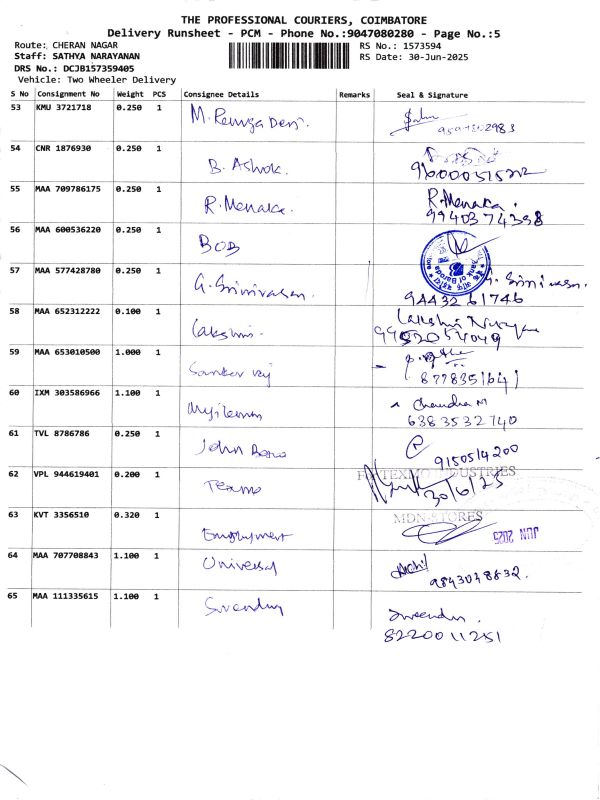 THE PROFESSIONAL COURIERS, COIMBATORE
Delivery Runsheet - PCM - Phone No.:9047080280 - Page No.:5
Route: CHERAN NAGAR
RS No.: 1573594
Staff: SATHYA NARAYANAN
RS Date: 30-Jun-2025
DRS No.: DCJB157359405
Vehicle: Two Wheeler Delivery
S No Consignment No Weight PCS Consignee Details Remarks Seal & Signature
53 KMU 3721718 0.250 1 M. Renuga Devi.
54 CNR 1876930 0.250 1 B. Ashok.
55 MAA 709786175 0.250 1 R. Menaka. R. Menaka.
9940374398
56 MAA 600536220 0.250 1 BOB
Bank of Baroda
57 MAA 577428780 0.250 1 G. Srinivasan. G. Srinivasan.
9443261746
58 MAA 652312222 0.100 1 Lakshmi. Lakshmi
9952054049
59 MAA 653010500 1.000 1 Sanker
60 IXM 303586966 1.100 1 Chandra M
6383532740
61 TVL 8786786 0.250 1 John
9150514200
62 VPL 944619401 0.200 1 Texmo TEXMO INDUSTRIES
30/6/25
63 KVT 3356510 0.320 1 Employment MDN-STORES
JUN 2025
64 MAA 707708843 1.100 1 Universal
9843048832.
65 MAA 111335615 1.100 1 Surendar Surendar.
8220011251